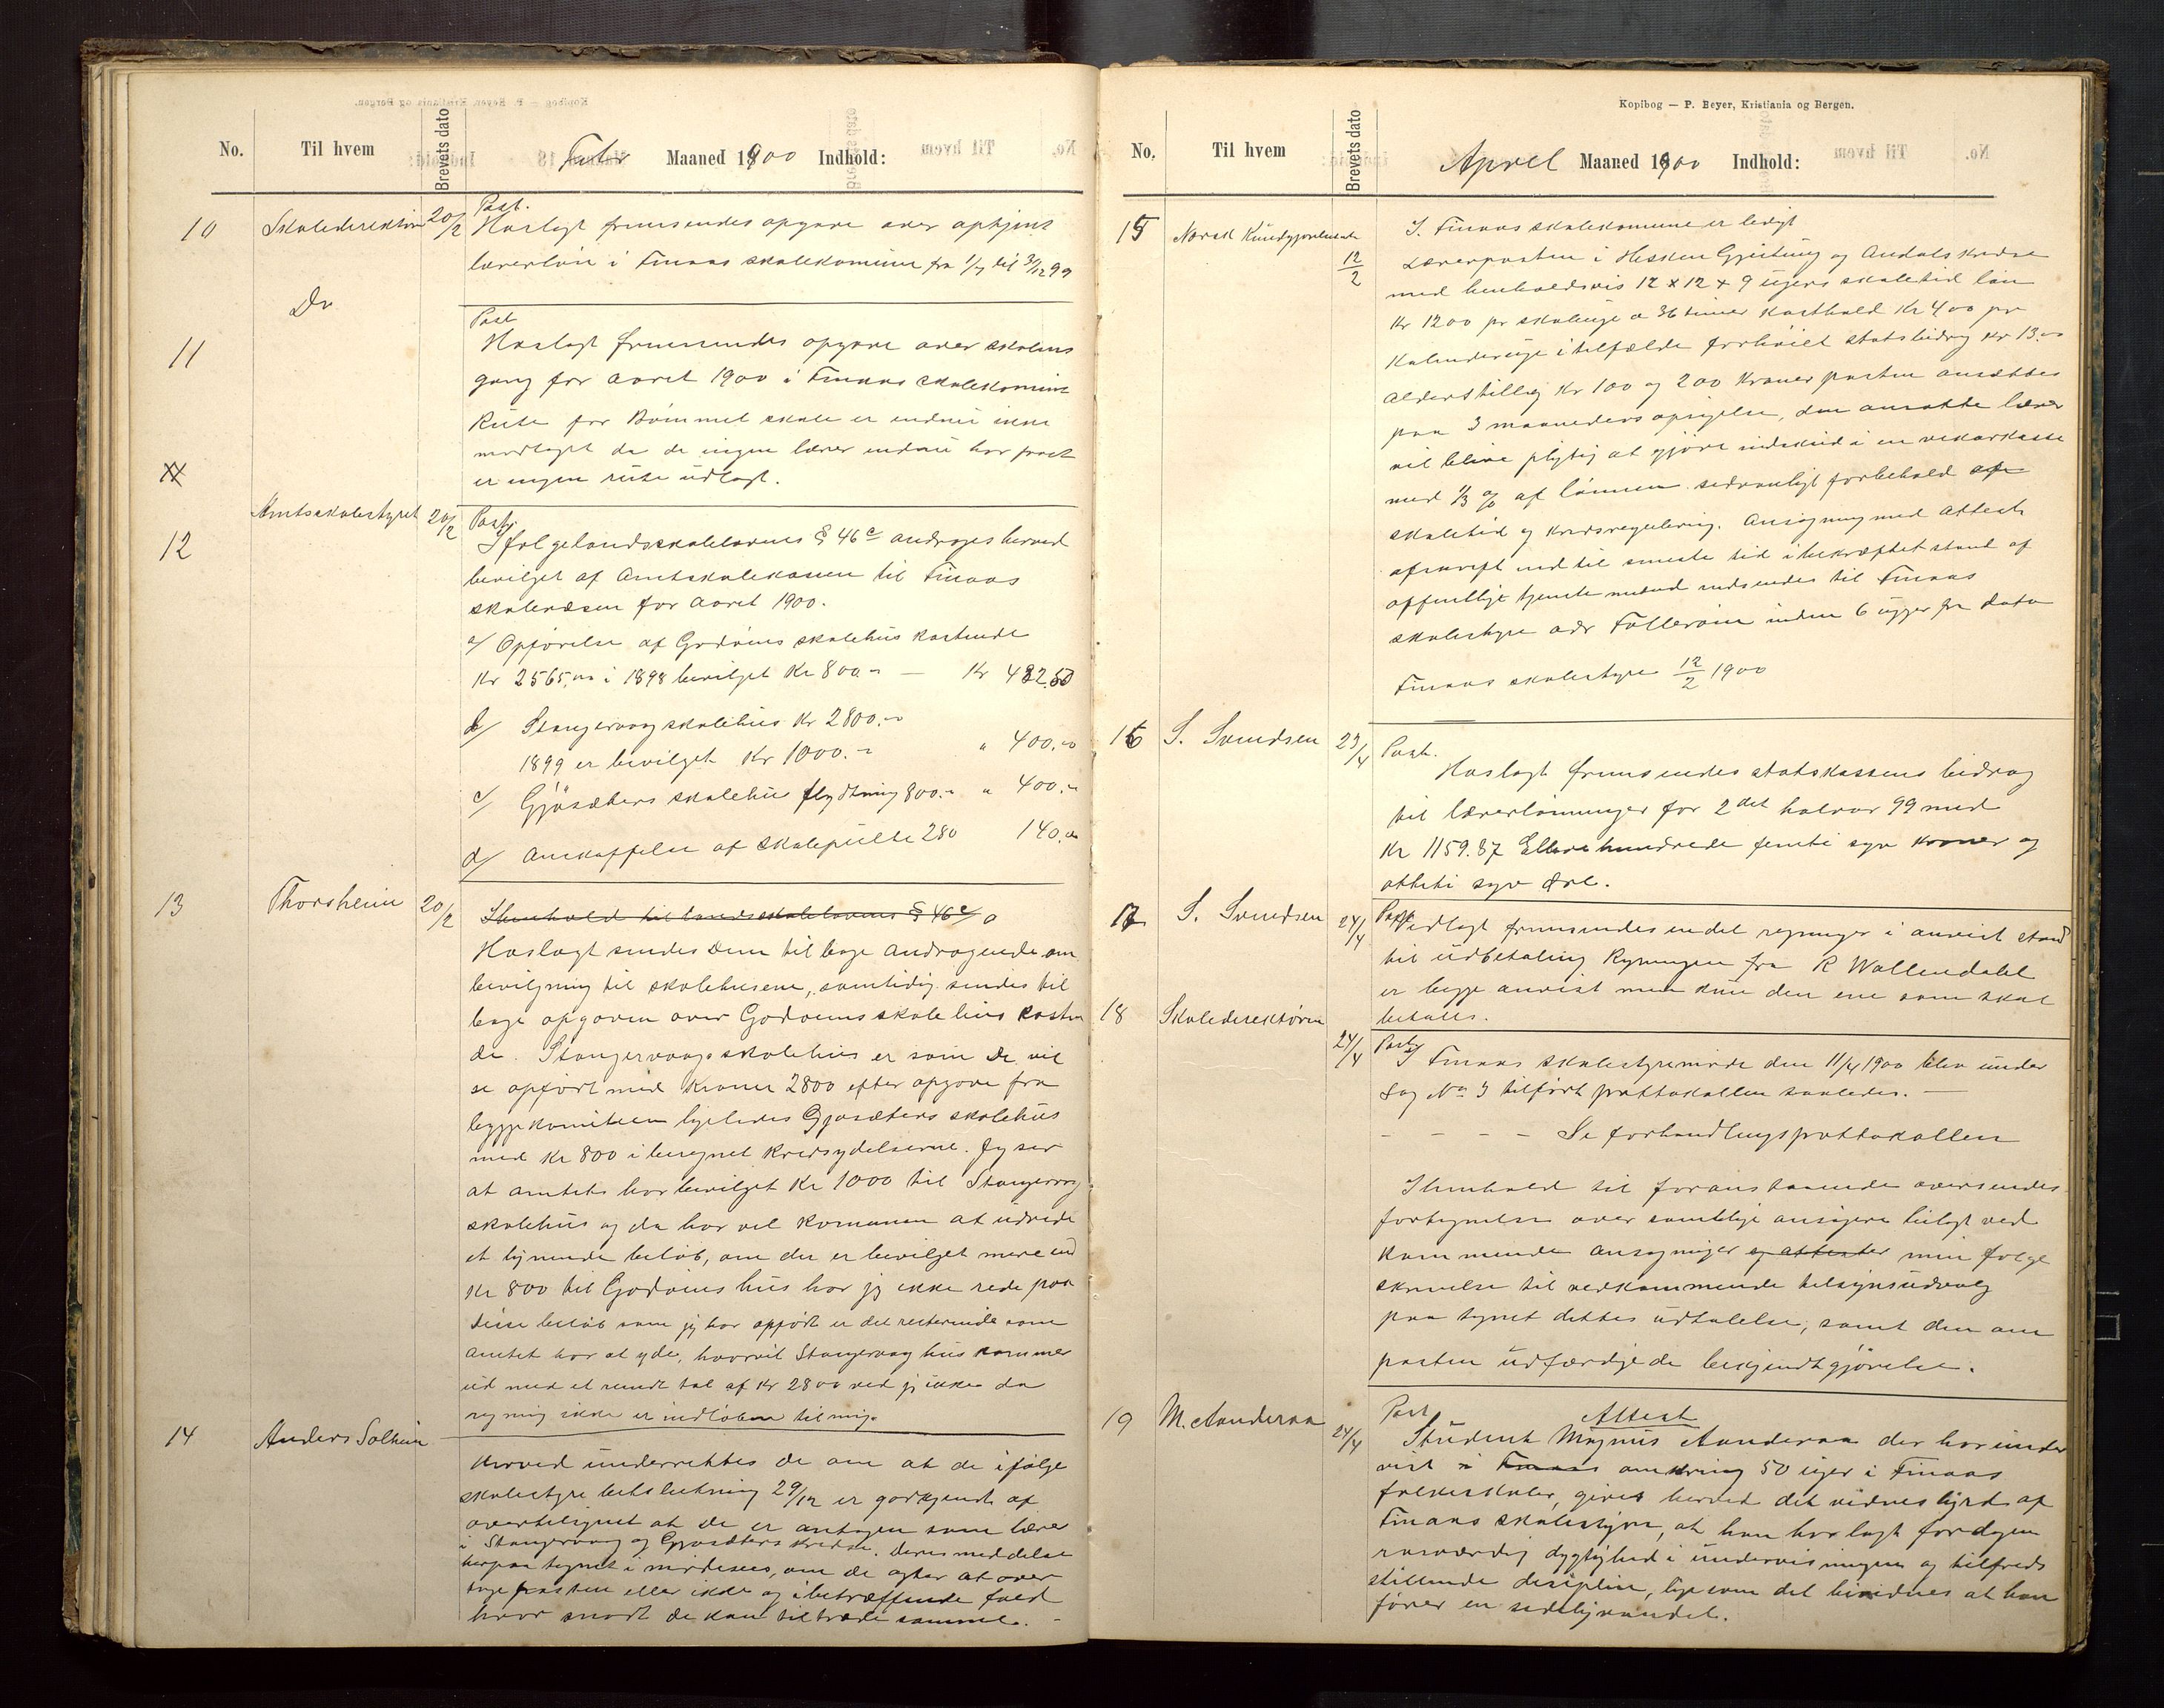 No.
Til hvem
Brevets dato
Febr Maaned 1900 Indhold:
10
Skoledirektørn
20/2
Past.
Hoslagt fremsendes opgave over optjent
lærerløn i Finaas skolekomune fra 1/7 til 31/12 99
11
Do
Past
Hoslagt fremsendes opgave over skolens
gang for aaret 1900 i Finaas skolekomune
Rute for Bømmel skole er endnu ikke
modtaget da de ingen lærer endnu har faaet
er ingen rute udlagt.
12
Amtsskolestyret
20/2
Past
Ifølge landsskolelovens § 46 c andrages herved
bevilget af Amtsskolekassen til Finaas
skolevæsen for aaret 1900.
a/ Opførelse af Godøens skolehus kostende
Kr 2565,00 i 1898 bevilget Kr 800.- — Kr 482.50
b/ Stangervaag skolehus Kr 2800.-
1899 er bevilget Kr 1000.- " 400.00
c/ Gjøsæters skolehus flydtning 800.- " 400.-
d/ Anskaffelse af skolepulte 280 140.00
13
Thorsheim
20/2
I henhold til landsskolelovens § 46 c/ a
Hoslagt sendes Dem tilbage Andragende om
bevilgning til skolehusene, samtidig sendes til
bage opgaven over Godøens skolehus kosten
de. Stangervaag skolehus er som De vil
se opført med Kroner 2800 efter opgave fra
byggekomiteen ligeledes Gjøsæters skolehus
med Kr 800 iberegnet Kredsydelserne. Jeg ser
at amtet har bevilget Kr 1000 til Stangervaag
skolehus og da har vel Komunen at udrede
et lignende beløb, om der er bevilget mere end
Kr 800 til Godøens hus har jeg ikke rede paa
Disse beløb som jeg har opført er det resterende som
Amtet har at yde, hvorvit Stangervaag hus kommer
ud med et rundt tal af Kr 2800 ved jeg ikke da
regning ikke er indløben til mig.
14
Anders Solheim
Herved underrettes De om at de ifølge
skolestyrebeslutning 29/12 er godkjendt af
overtilsynet at De er antagen som lærer
i Stangervaag og Gjøsæters kredse. Deres meddelse
herpaa tegnet i mødesees, om De agter at over
tage posten eller ikke og i betræffende fald
hvor snart De kan tiltræde samme. -
Kopibog — P. Beyer, Kristiania og Bergen.
No.
Til hvem
Brevets dato
April Maaned 1900 Indhold:
15
Norsk Kundgjørelsestid
12/2
I. Finaas skolekomune er ledigt
Lærerposten i Hisken Gjeitung og Andals kredse
med henholdsvis 12 x 12 x 9 ugers skoletid løn
Kr 1200 pr skoleuge a 36 timer Kosthold Kr 4,00 pr
Kalenderuge i tilfælde forhøiet statsbidrag Kr 13.00
Alderstillæg Kr 100 og 200 Kroner posten ansættes
paa 3 maaneders opsigelse, den ansatte lærer
vil blive pligtig at gjøre indskud i en vikarkasse
med 1/3 % af lønnen sedvanligt forbehold af
skoletid og kredsregulering. Ansøgning med Attest
afskrift indtil seneste tid i bekræftet stand af
offentlige tjenstemænd indsendes til Finaas
skolestyre adr Føllerøen inden 6 uger fra dato
Finaas skolestyre 12/2 1900
16
S. Svendsen
23/4
Past.
Hoslagt fremsendes statskassens bidrag
til lærerlønninger for 2det halvaar 99 med
Kr 1159.87 Ellevehundrede femti syv kroner og
otteti syv Øre.
17
S. Svendsen
24/4
Past
Vedlagt fremsendes endel regninger i anvist stand
til udbetaling Regningen fra R Wallendahl
er begge anvist men kun den ene som skal
betales.
18
Skoledirektørn
24/4
Past
I Finaas skolestyremøde den 11/4 1900 blev under
Sag No 3 tilført prottokollen saaledes. —
- - - - Se forhandlingsprottokollen
I henhold til foranstaaende oversendes
fortegnelse over samtlige ansøgere tillagt ved
kommende ansøgninger og attester min følge
skrivelse til vedkommende tilsynsudvalg
paa tegnet dettes udtalelse, samt den om
posten udfærdigede bekjendtgjørelse.
19
M. Aanderaa
24/4
Past
Attest
Student Magnus Aanderaa der har under
vist i Finaas omkring 50 uger i Finaas
folkeskoler, gives herved det vidnesbyrd af
Finaas skolestyre, at han har lagt fordagen
rosværdig dygtighed i undervisningen og tilfreds
stillende disciplin, ligesom det bevidnes at han
fører en sedelig vandel.